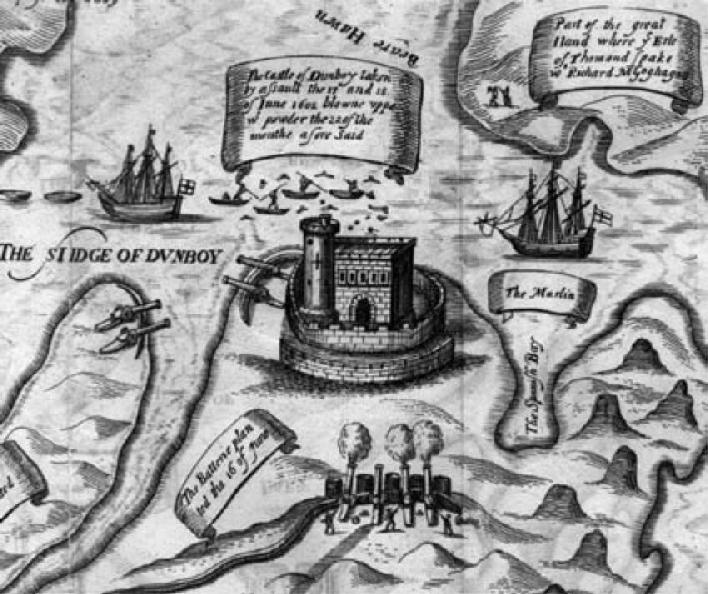 Beare Haven
Part of the great
Iland where yͤ Erle
of Thomond spake
wͭ Richard McGeghagan
The Castle of Dunboy taken
by assault the 17 and 18
of June 1602 blowne uppe
wͭ powder the 22 of the
monthe afore said
THE SIIDGE OF DVNBOY
The Marlin
The Spanish Bay
The Batterie plan
ted the 16 of June